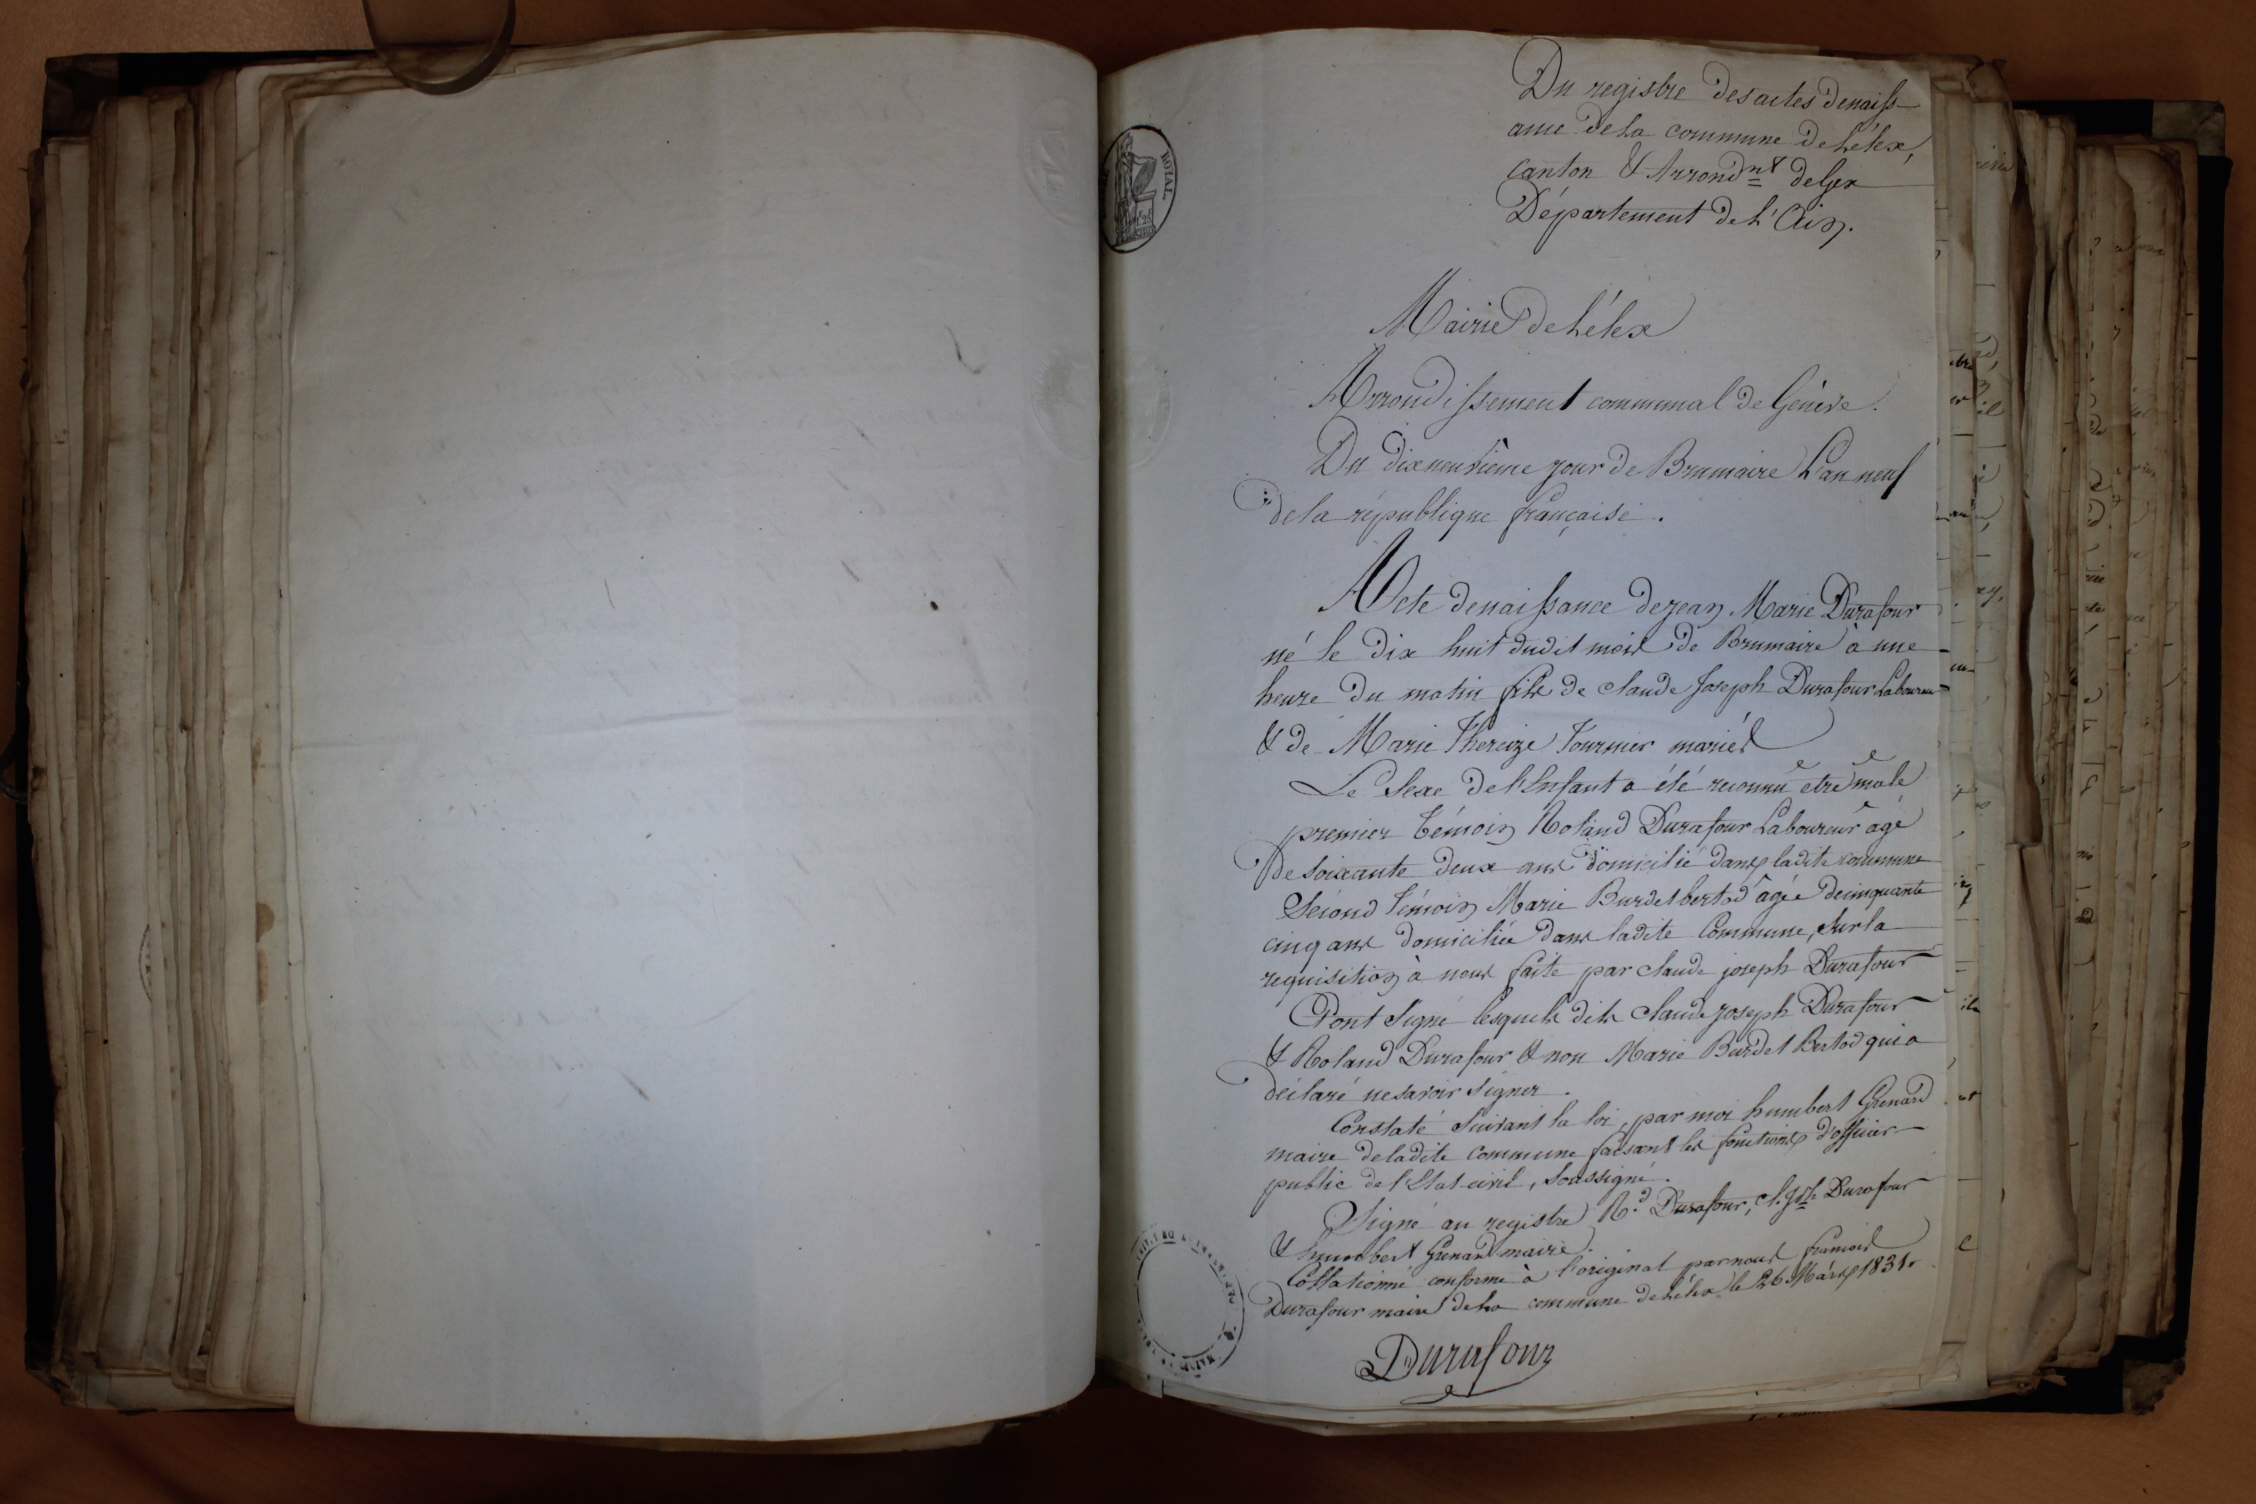 Du registre des actes de naiss-
ance de la commune de Lélex,
canton & Arrond.nt de Gex
Département de L'Ain.
ROYAL
Mairie de Lélex
Arrondissement communal de Genève.
Du dixneuvième jour de Brumaire L'an neuf
de la république française.
Acte denaissance de jean Marie Durafour
né le dix huit dudit mois de Brumaire à une
heure du matin fils de claude Joseph Durafour Laboureur
& de Marie Thereize Fournier mariés
Le Sexe de l'Enfant a été reconnu etre male
premier témoin Roland Durafour Laboureur âgé
de soixante deux ans domicilié dans ladite commune
Second témoin Marie Burdet bertod âgée decinquante
cinq ans domiciliée dans ladite Commune, Sur la
requisition à nous faite par claude joseph Durafour
Ont Signé lesquels dits claude joseph Durafour
& Roland Durafour & non Marie Burdet Bertod qui a
déclaré ne savoir signer.
Constaté Suivant la loi, par moi humbert Grenard
maire deladite commune faisant les fonctions d'officier
public de l'Etat-civil, Soussigné.
Signé au registre R.d Durafour, Cl. Jph Durafour
& humbert Grenard maire.
Collationné conforme à l'original par nous françois
Durafour maire de la commune de Lélex le 26 Mars 1831.
Durafour